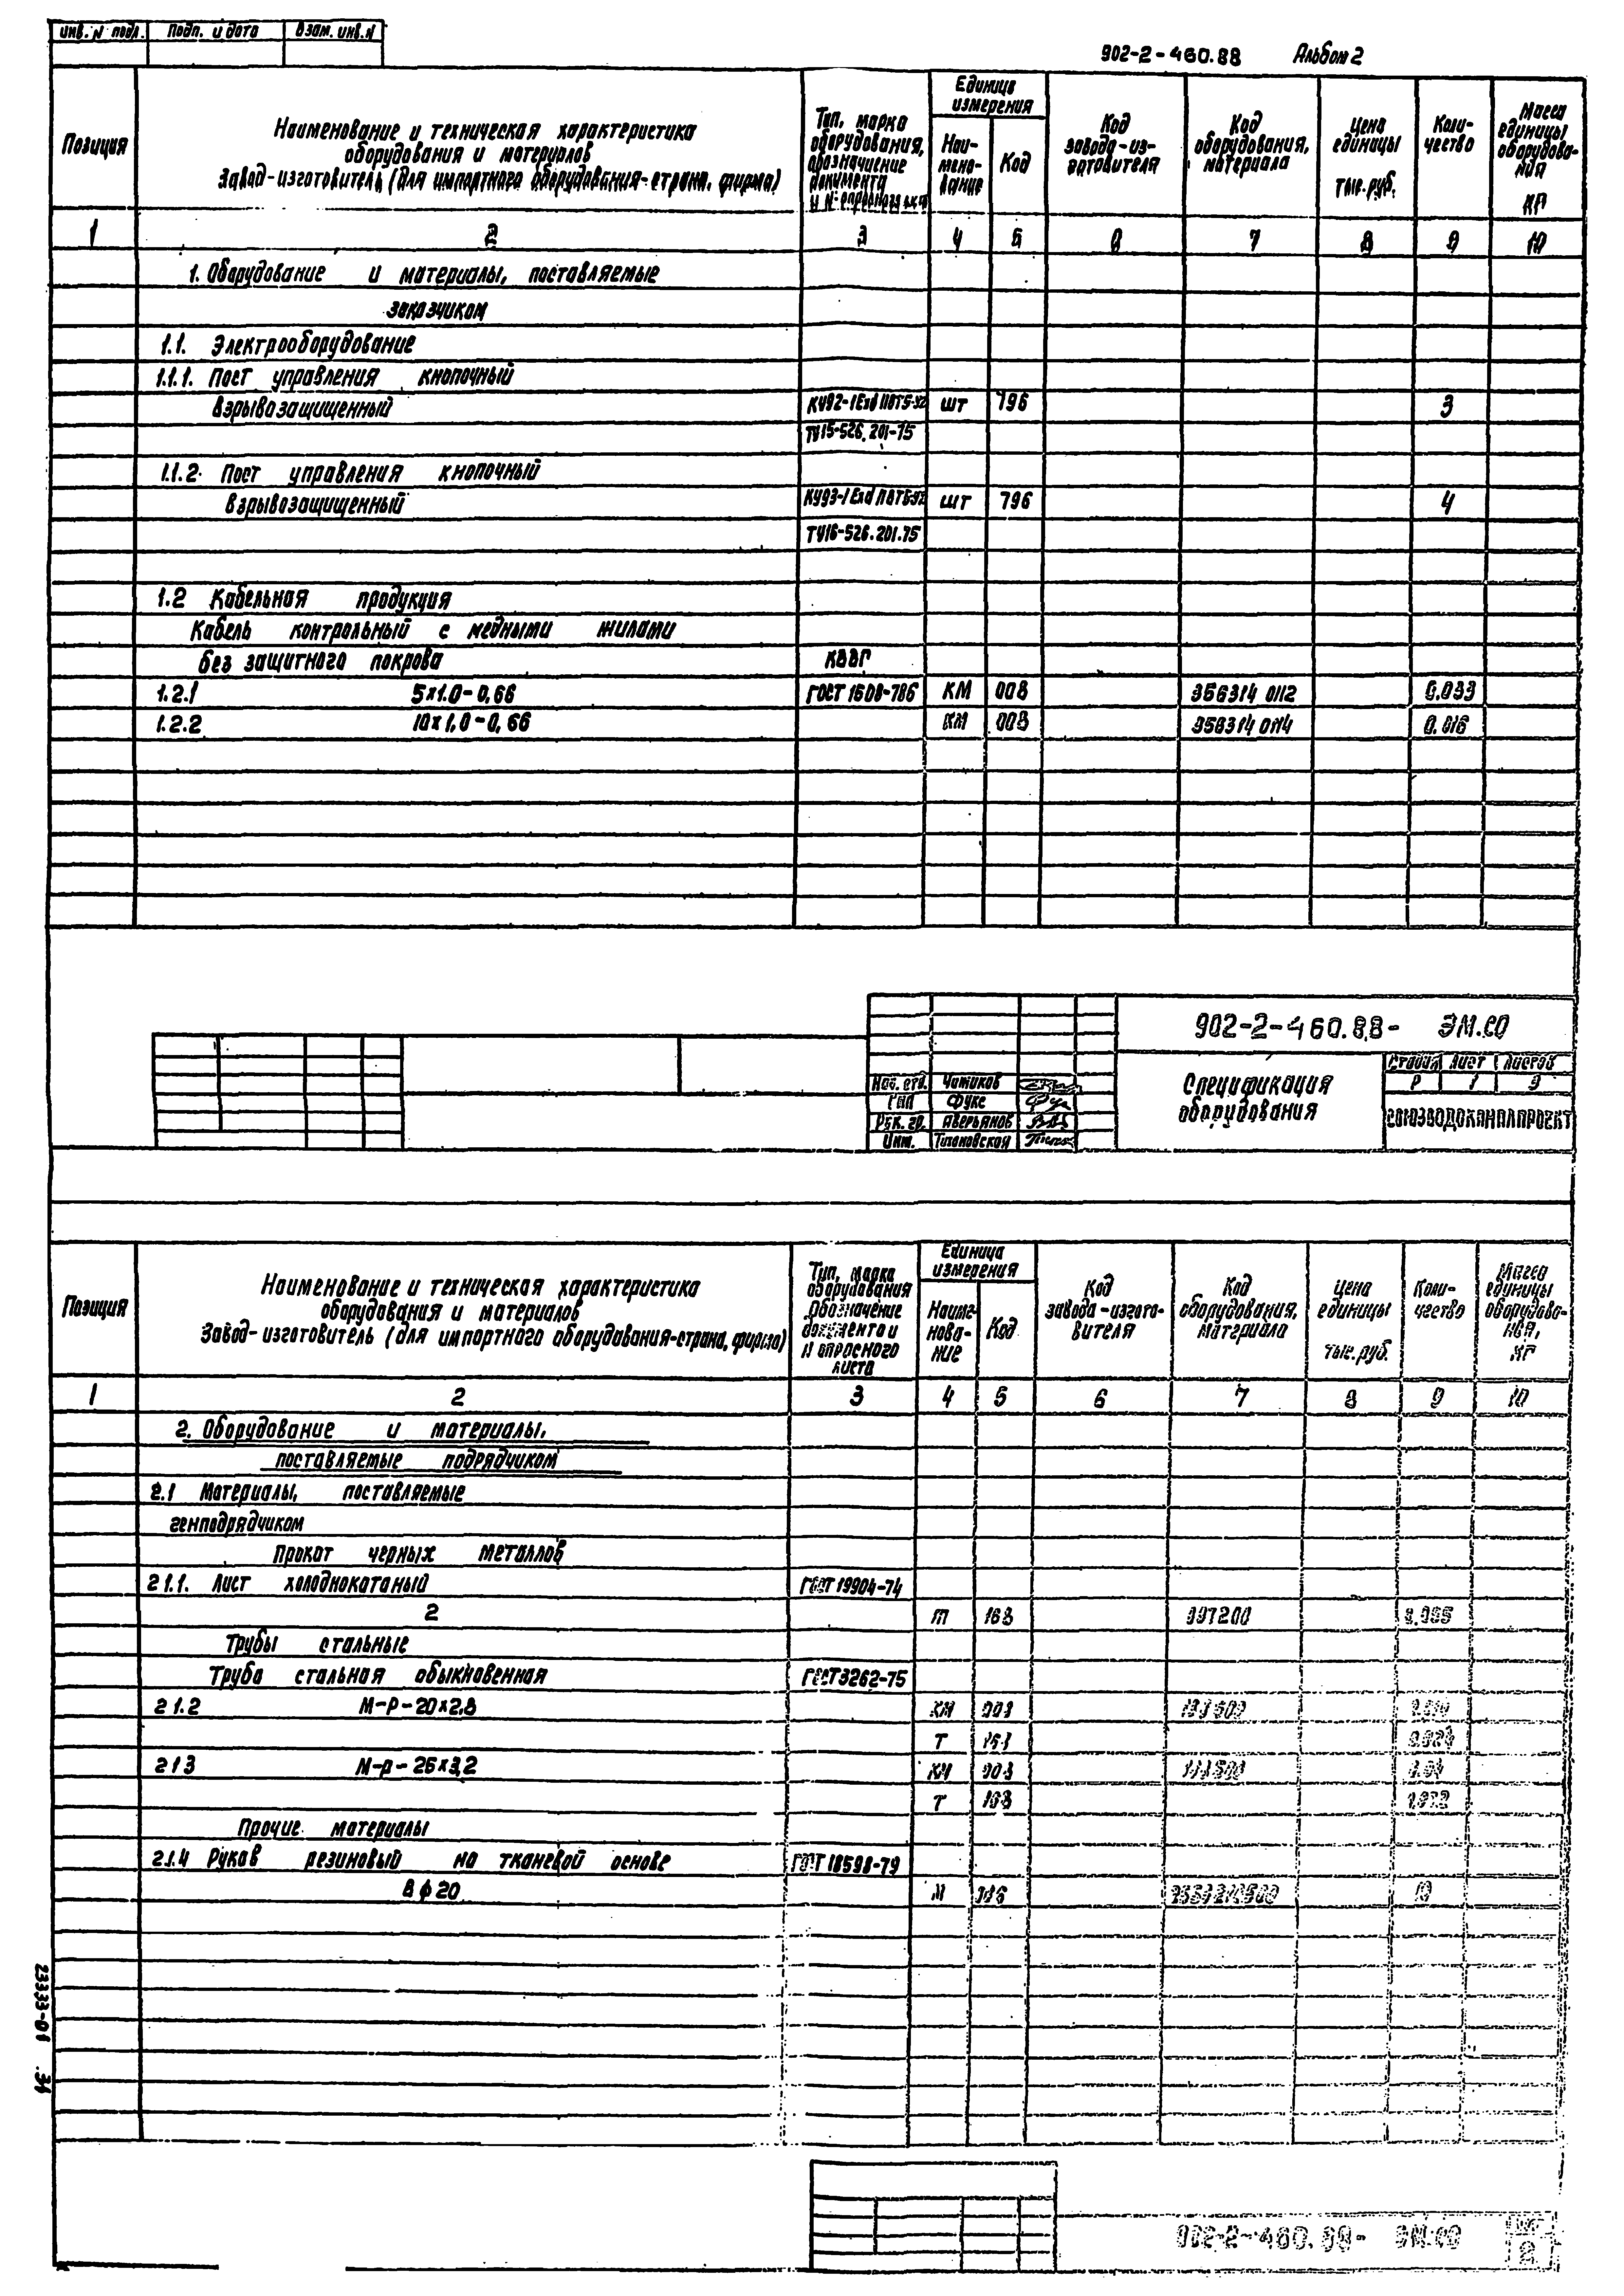 инв. N подл. Подп. и дата Взам. инв. N
902-2-460.88 Альбом 2
Позиция
Наименование и техническая характеристика
оборудования и материалов
Завод-изготовитель (для импортного оборудования-страна, фирма)
Тип, марка
оборудования,
обозначение
документа
и N опросного листа
Единица
измерения
Наи-
мено-
вание
Код
Код
завода-из-
готовителя
Код
оборудования,
материала
Цена
единицы
тыс. руб.
Коли-
чество
Масса
единицы
оборудова-
ния
кг
1 2 3 4 5 6 7 8 9 10
1. Оборудование и материалы, поставляемые
заказчиком
1.1. Электрооборудование
1.1.1. Пост управления кнопочный
взрывозащищенный КУ92-1ExdIIBT5-У2 шт 796 3
ТУ15-526.201-75
1.1.2. Пост управления кнопочный
взрывозащищенный КУ93-1ExdIIBT5-У2 шт 796 4
ТУ16-526.201.75
1.2 Кабельная продукция
Кабель контрольный с медными жилами
без защитного покрова КВВГ
1.2.1 5х1.0-0,66 ГОСТ 1508-78Б КМ 008 356314 0112 0.033
1.2.2 10х1,0-0,66 КМ 008 356314 0114 0.016
902-2-460.88- ЭМ.СО
Нач. отд. Чижиков
ГИП Фукс
Рук. гр. Аверьянов
Инж. Тиановская
Спецификация
оборудования
Стадия Лист Листов
Р 1 9
СОЮЗВОДОКАНАЛПРОЕКТ
Позиция
Наименование и техническая характеристика
оборудования и материалов
Завод-изготовитель (для импортного оборудования-страна, фирма)
Тип, марка
оборудования
Обозначение
документа и
N опросного
листа
Единица
измерения
Наиме-
нова-
ние
Код
Код
завода-изгото-
вителя
Код
оборудования,
материала
Цена
единицы
тыс. руб.
Коли-
чество
Масса
единицы
оборудова-
ния,
кг
1 2 3 4 5 6 7 8 9 10
2. Оборудование и материалы,
поставляемые подрядчиком
2.1 Материалы, поставляемые
генподрядчиком
Прокат черных металлов
2.1.1. Лист холоднокатаный ГОСТ 19904-74
2 т 168 097200
Трубы стальные
Труба стальная обыкновенная ГОСТ 3262-75
2 1.2 М-Р-20х2,8 КМ 008
Т 168
2 1 3 М-Р-25х3,2 КМ 008
Т 168
Прочие материалы
2.1.4 Рукав резиновый на тканевой основе ГОСТ 18598-79
В ф 20 М 10
902-2-460.88- ЭМ.СО
2
23333-01 34